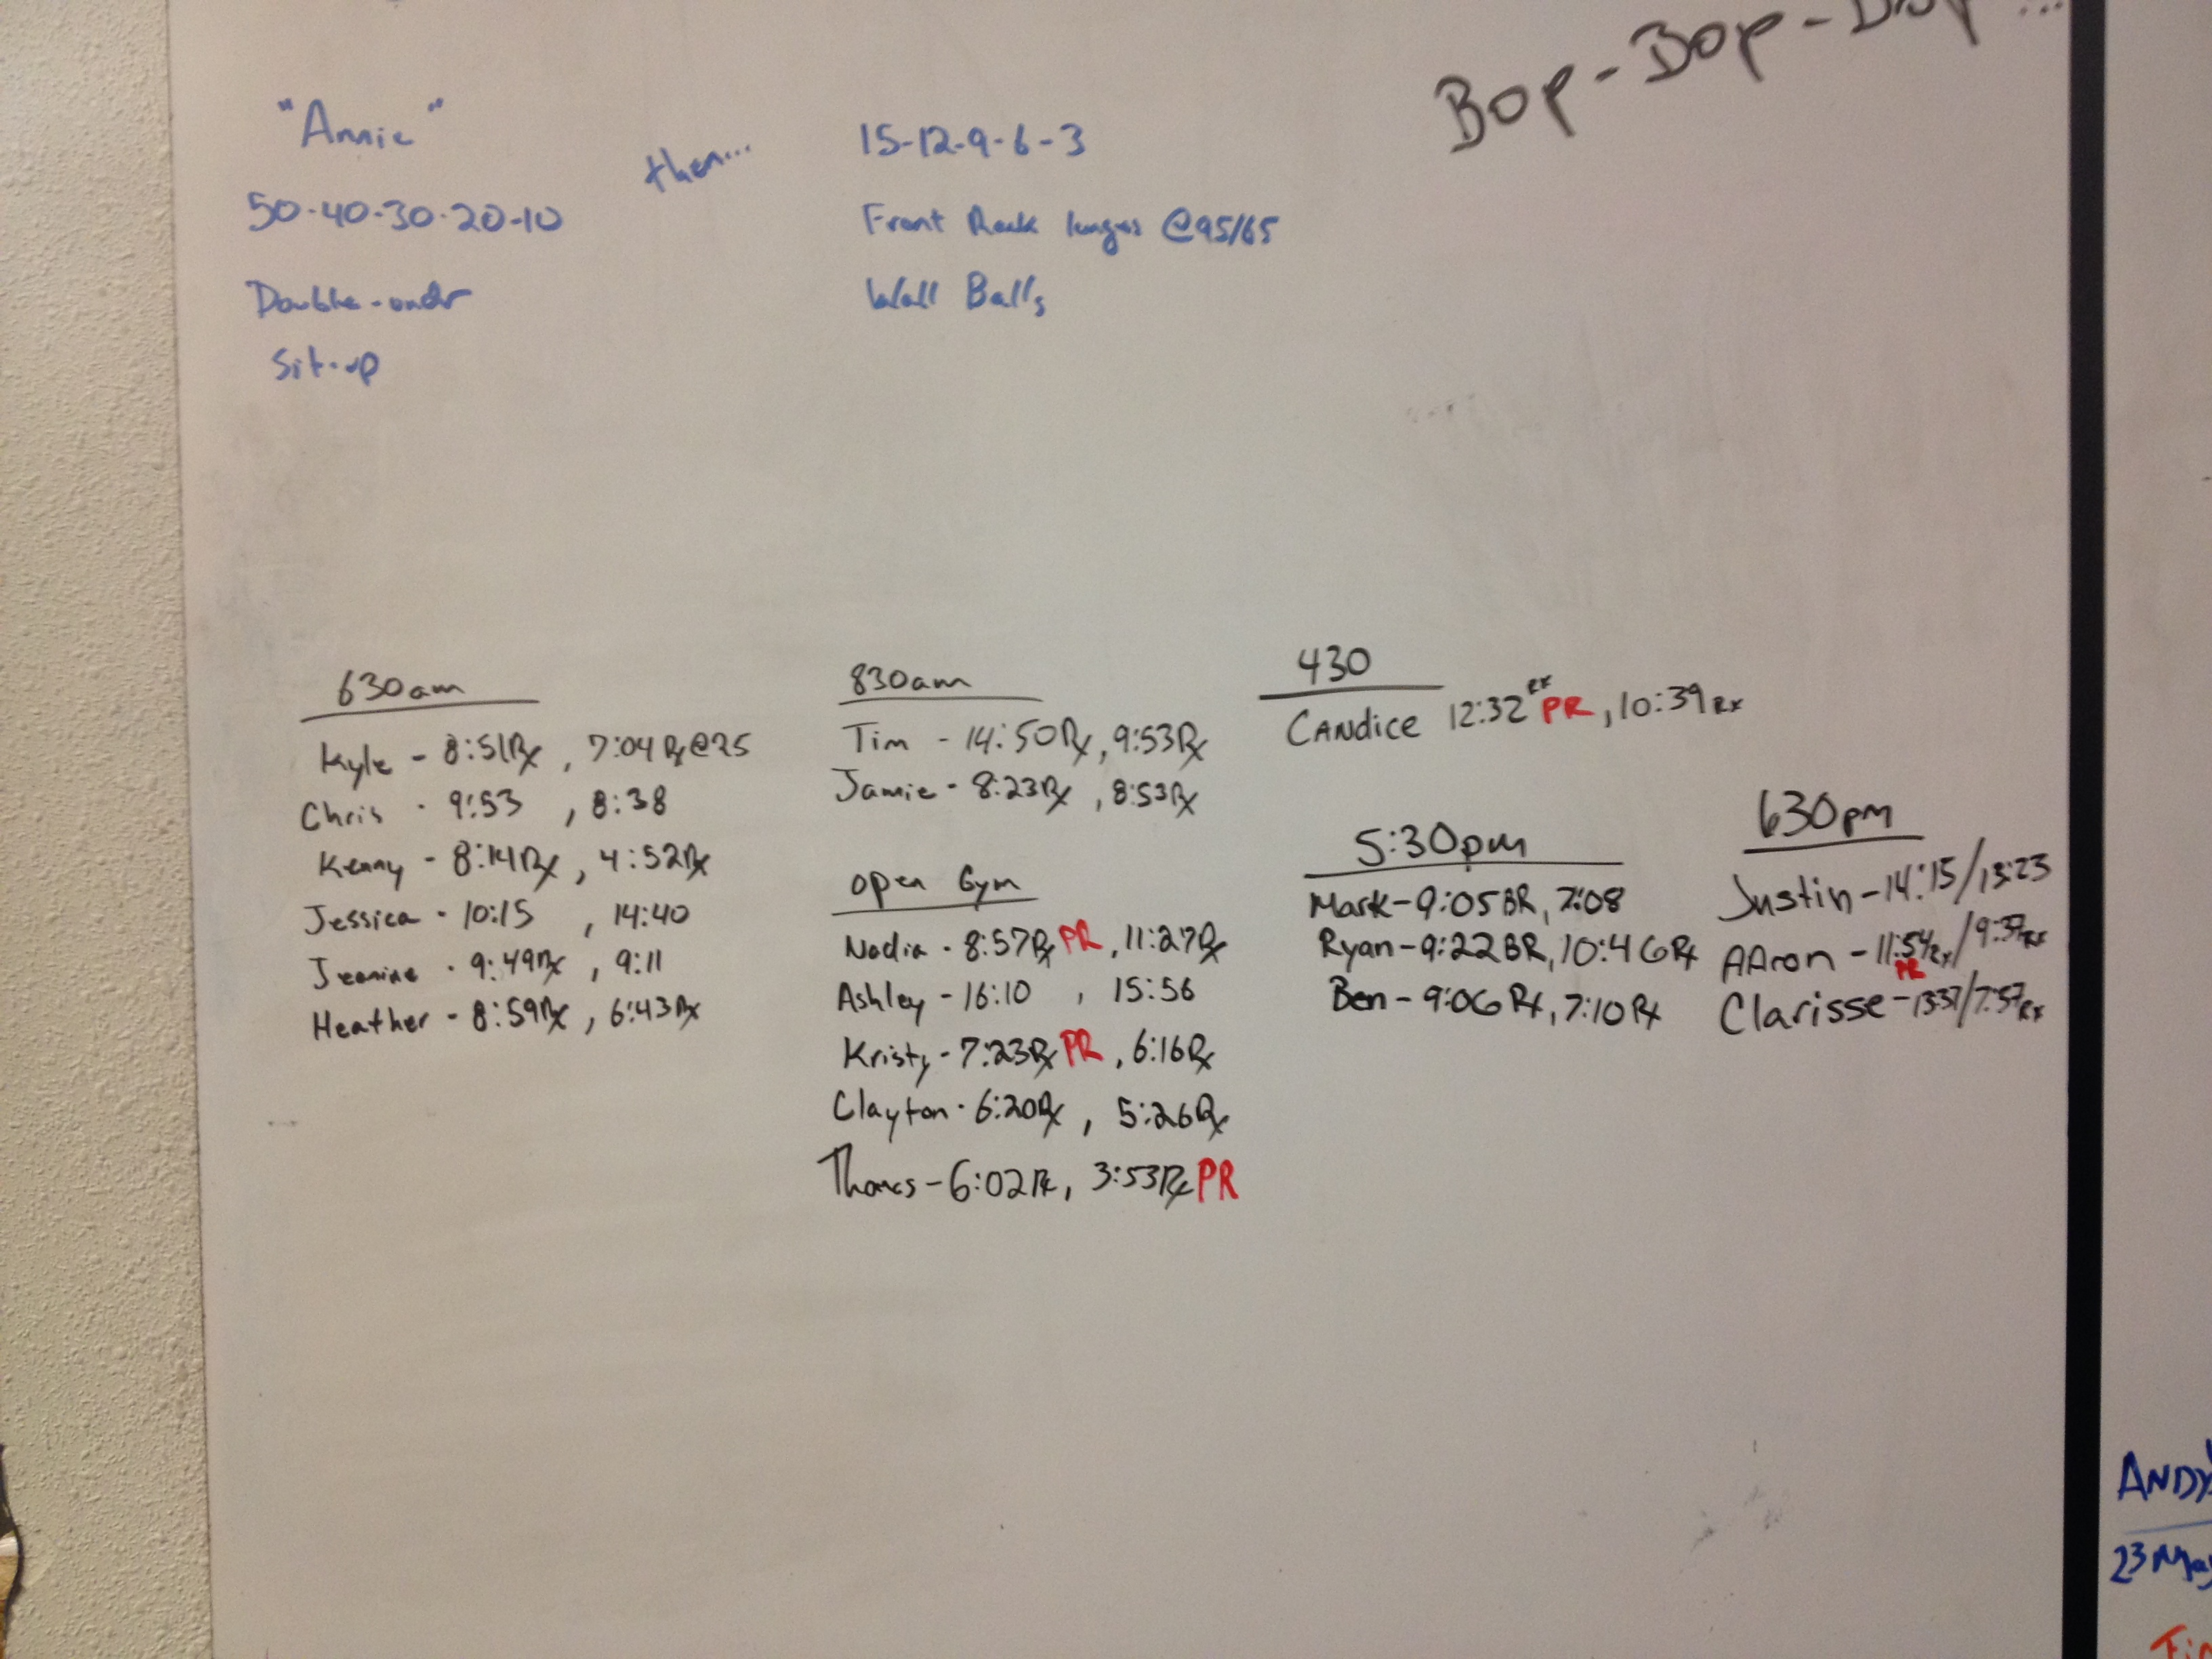 Bop-Bop-Bop...
"Annie"
50-40-30-20-10
Double-under
Sit-up
then...
15-12-9-6-3
Front Rack lunges @95/65
Wall Balls
630am
Kyle - 8:51Rx, 7:04Rx@25
Chris - 9:53, 8:38
Kenny - 8:14Rx, 4:52Rx
Jessica - 10:15, 14:40
Jeanine - 9:49Rx, 9:11
Heather - 8:59Rx, 6:43Rx
830am
Tim - 14:50Rx, 9:53Rx
Jamie - 8:23Rx, 8:53Rx
open Gym
Nadia - 8:57Rx PR, 11:27Rx
Ashley - 16:10, 15:56
Kristy - 7:23Rx PR, 6:16Rx
Clayton - 6:20Rx, 5:26Rx
Thomas - 6:02Rx, 3:53Rx PR
430
CANdice 12:32 Rx PR, 10:39Rx
5:30pm
Mark - 9:05BR, 7:08
Ryan - 9:22BR, 10:46Rx
Ben - 9:06Rx, 7:10Rx
630pm
Justin - 14:15/13:23
AAron - 11:54Rx/9:37Rx
PR
Clarisse - 13:37/7:57Rx
ANDY
23 May